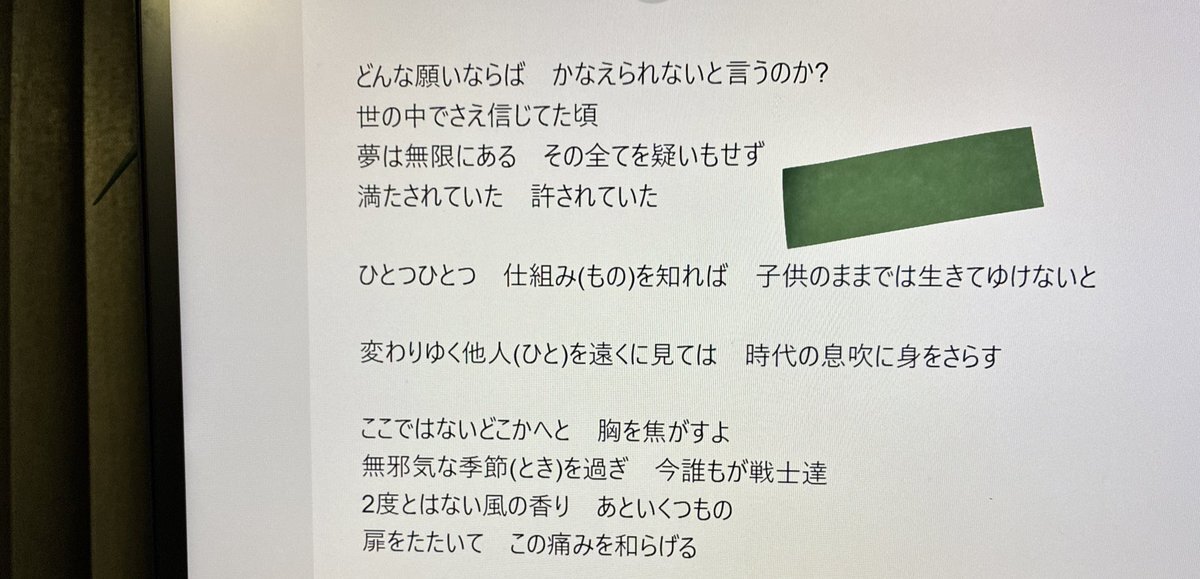 どんな願いならば　かなえられないと言うのか?
世の中でさえ信じてた頃
夢は無限にある　その全てを疑いもせず
満たされていた　許されていた
ひとつひとつ　仕組み(もの)を知れば　子供のままでは生きてゆけないと
変わりゆく他人(ひと)を遠くに見ては　時代の息吹に身をさらす
ここではないどこかへと　胸を焦がすよ
無邪気な季節(とき)を過ぎ　今誰もが戦士達
2度とはない風の香り　あといくつもの
扉をたたいて　この痛みを和らげる